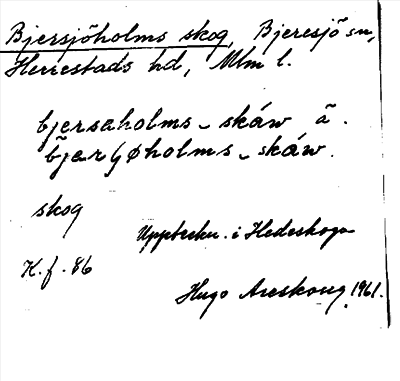 Bjersjöholms skog, Bjeresjö sn,
Herrestads hd, Mlm l.
bjersaholms - skáw ã.
bjarʃøholms - skáw.
skog
Uppteckn. i Hedeskoga
K. f. 86
Hugo Areskoug 1961.